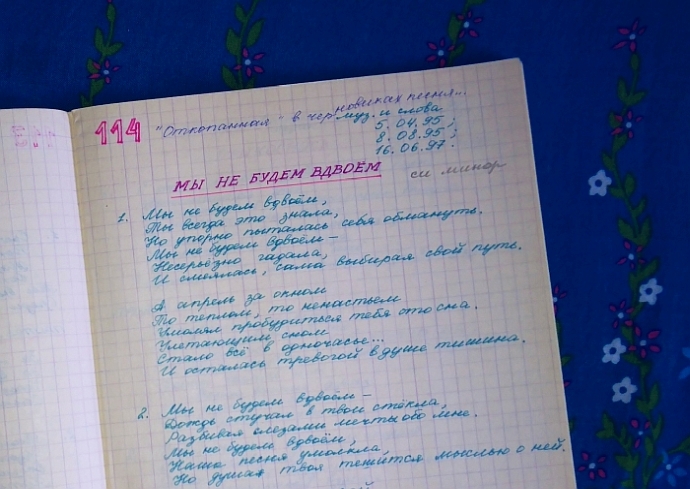 114
"Откопанная" в черновиках песня...
муз. и слова
5.04.95;
8.08.95;
16.06.97.
МЫ НЕ БУДЕМ ВДВОЁМ
си минор
1. Мы не будем вдвоём,
Ты всегда это знала,
Но упорно пыталась себя обмануть.
Мы не будем вдвоём –
Несерьёзно гадала,
И смеялась, сама выбирая свой путь.
А апрель за окном
То теплом, то ненастьем
Умолял пробудиться тебя ото сна.
Улетающим сном
Стало всё в одночасье...
И осталась тревогой в душе тишина.
2. Мы не будем вдвоём –
Дождь стучал в твои стёкла,
Разбивая слезами мечты обо мне.
Мы не будем вдвоём,
Наша песня умолкла,
Но душа твоя тешится мыслью о ней.